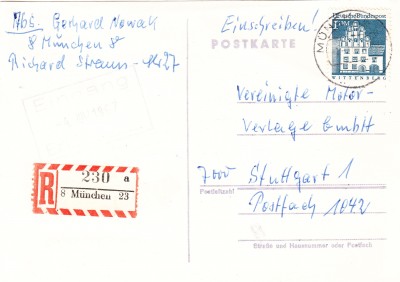 Abs. Gerhard Nowak
8 München 8
Richard Strauss-Str 27
Einschreiben!
POSTKARTE
Deutsche Bundespost
WITTENBERG
MÜN
Vereinigte Motor-
Verlage GmbH
7000 Stuttgart 1
Postleitzahl
Postfach 1042
Straße und Hausnummer oder Postfach
R
230 a
8 München 23